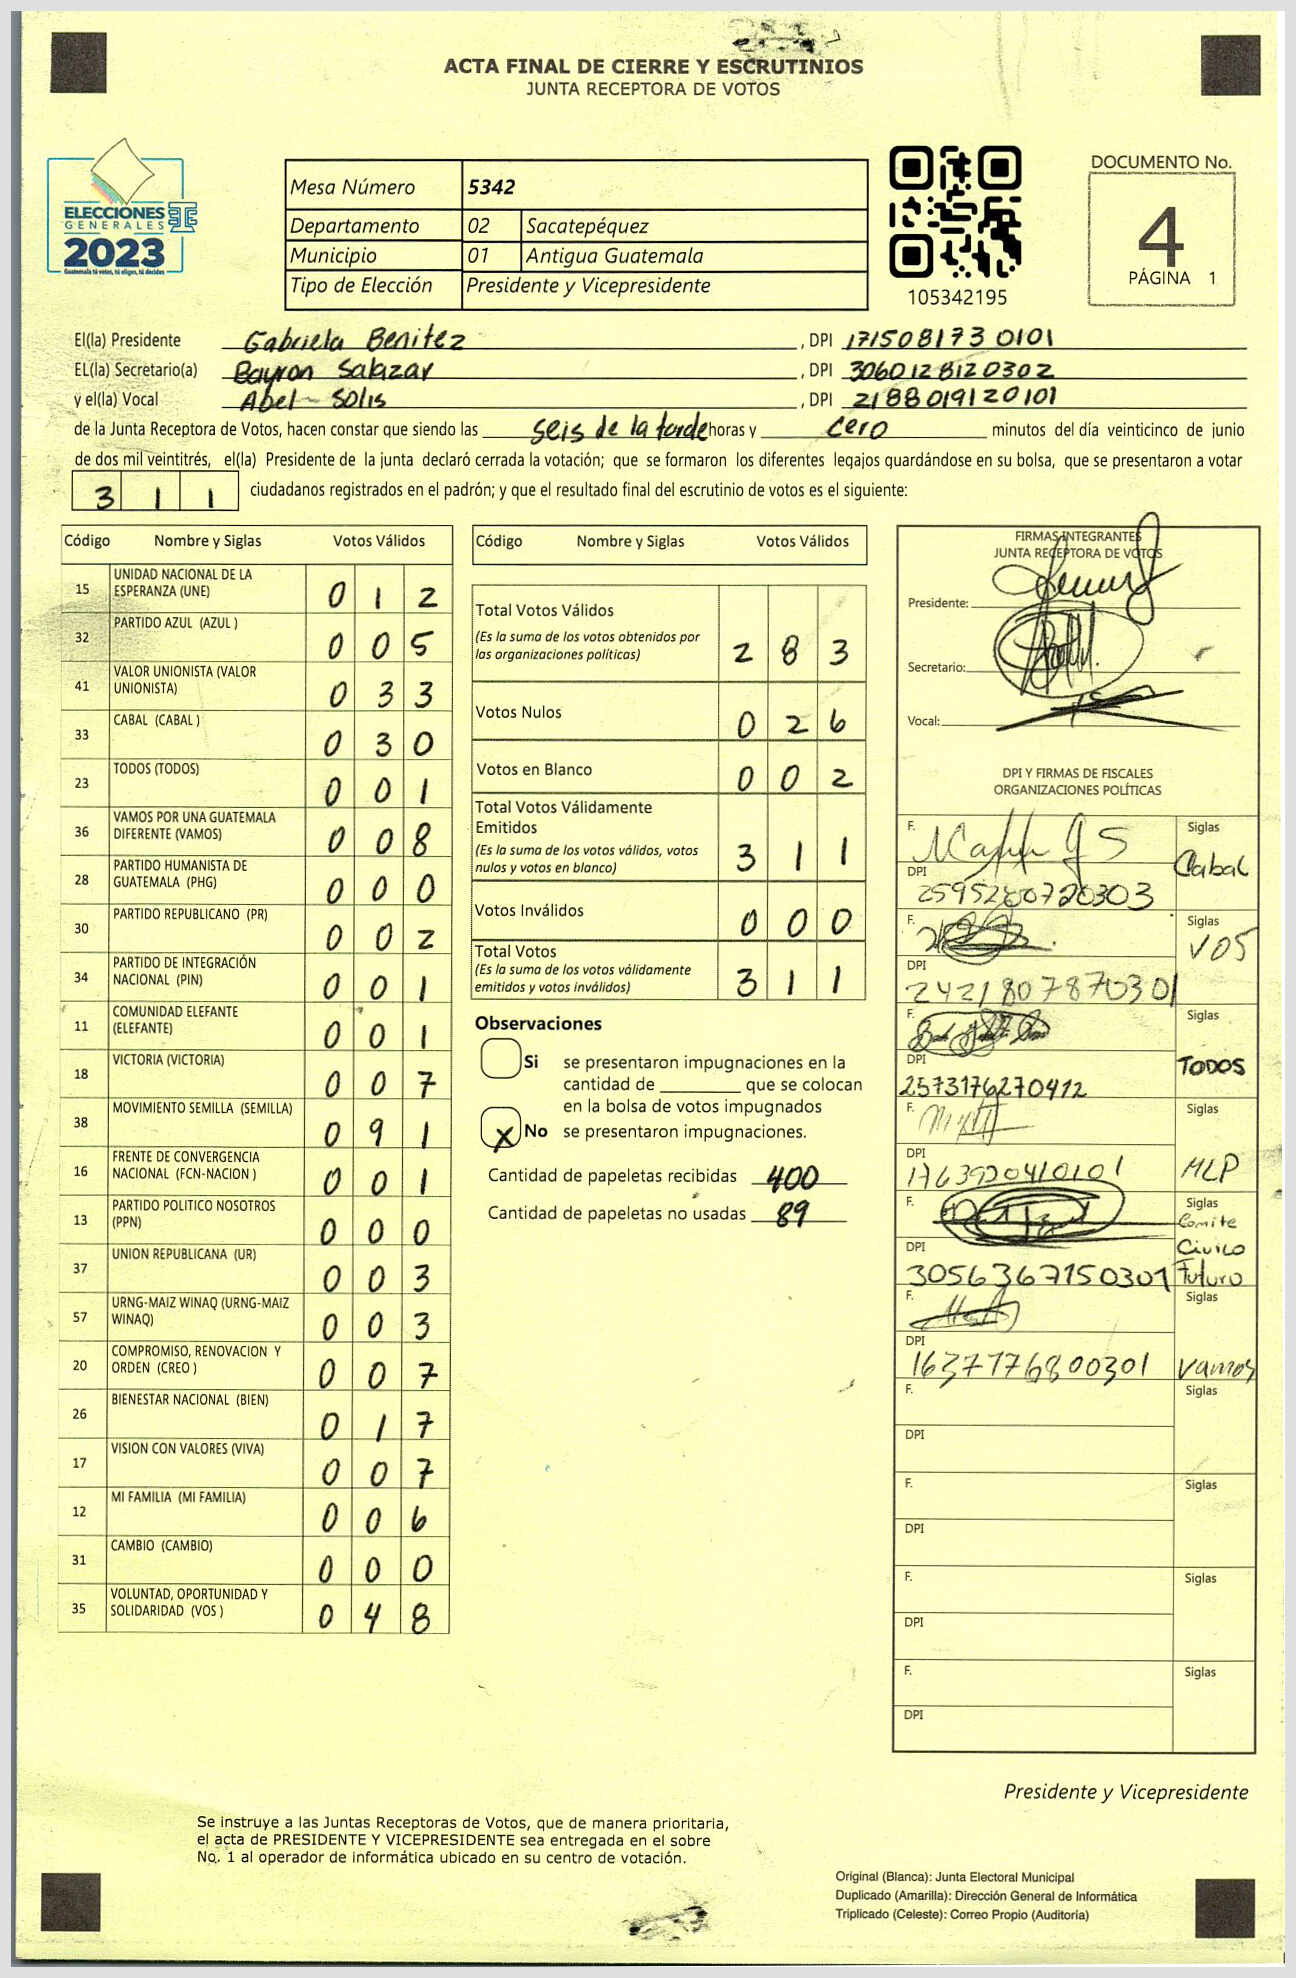 ACTA FINAL DE CIERRE Y ESCRUTINIOS
JUNTA RECEPTORA DE VOTOS
ELECCIONES
GENERALES
2023
Guatemala tú votas, tú eliges, tú decides
Mesa Número 5342
Departamento 02 Sacatepéquez
Municipio 01 Antigua Guatemala
Tipo de Elección Presidente y Vicepresidente
105342195
DOCUMENTO No.
4
PÁGINA 1
El(la) Presidente Gabriela Benitez, DPI 171508173 0101
EL(la) Secretario(a) Bayron Salazar, DPI 3060128120302
y el(la) Vocal Abel Solis, DPI 2188019120101
de la Junta Receptora de Votos, hacen constar que siendo las seis de la tarde horas y cero minutos del día veinticinco de junio
de dos mil veintitrés, el(la) Presidente de la junta declaró cerrada la votación; que se formaron los diferentes legajos guardándose en su bolsa, que se presentaron a votar
3 1 1 ciudadanos registrados en el padrón; y que el resultado final del escrutinio de votos es el siguiente:
Código Nombre y Siglas Votos Válidos
15 UNIDAD NACIONAL DE LA ESPERANZA (UNE) 0 1 2
32 PARTIDO AZUL (AZUL ) 0 0 5
41 VALOR UNIONISTA (VALOR UNIONISTA) 0 3 3
33 CABAL (CABAL ) 0 3 0
23 TODOS (TODOS) 0 0 1
36 VAMOS POR UNA GUATEMALA DIFERENTE (VAMOS) 0 0 8
28 PARTIDO HUMANISTA DE GUATEMALA (PHG) 0 0 0
30 PARTIDO REPUBLICANO (PR) 0 0 2
34 PARTIDO DE INTEGRACIÓN NACIONAL (PIN) 0 0 1
11 COMUNIDAD ELEFANTE (ELEFANTE) 0 0 1
18 VICTORIA (VICTORIA) 0 0 7
38 MOVIMIENTO SEMILLA (SEMILLA) 0 9 1
16 FRENTE DE CONVERGENCIA NACIONAL (FCN-NACION ) 0 0 1
13 PARTIDO POLITICO NOSOTROS (PPN) 0 0 0
37 UNION REPUBLICANA (UR) 0 0 3
57 URNG-MAIZ WINAQ (URNG-MAIZ WINAQ) 0 0 3
20 COMPROMISO, RENOVACION Y ORDEN (CREO ) 0 0 7
26 BIENESTAR NACIONAL (BIEN) 0 1 7
17 VISION CON VALORES (VIVA) 0 0 7
12 MI FAMILIA (MI FAMILIA) 0 0 6
31 CAMBIO (CAMBIO) 0 0 0
35 VOLUNTAD, OPORTUNIDAD Y SOLIDARIDAD (VOS ) 0 4 8
Código Nombre y Siglas Votos Válidos
Total Votos Válidos
(Es la suma de los votos obtenidos por
las organizaciones políticas) 2 8 3
Votos Nulos 0 2 6
Votos en Blanco 0 0 2
Total Votos Válidamente
Emitidos
(Es la suma de los votos válidos, votos
nulos y votos en blanco) 3 1 1
Votos Inválidos 0 0 0
Total Votos
(Es la suma de los votos válidamente
emitidos y votos inválidos) 3 1 1
Observaciones
Si se presentaron impugnaciones en la
cantidad de ________ que se colocan
en la bolsa de votos impugnados
X No se presentaron impugnaciones.
Cantidad de papeletas recibidas 400
Cantidad de papeletas no usadas 89
FIRMAS INTEGRANTES
JUNTA RECEPTORA DE VOTOS
Presidente:
Secretario:
Vocal:
DPI Y FIRMAS DE FISCALES
ORGANIZACIONES POLÍTICAS
F. Siglas
Cabal
DPI 2595280720303
F. Siglas
VOS
DPI
2421807870301
F. Siglas
TODOS
DPI
2573176270412
F. Siglas
MLP
DPI
1763920410101
F. Siglas
Comite
Civico
Futuro
DPI
3056367150301
F. Siglas
Vamos
DPI
1637776800301
F. Siglas
DPI
F. Siglas
DPI
F. Siglas
DPI
F. Siglas
DPI
Presidente y Vicepresidente
Se instruye a las Juntas Receptoras de Votos, que de manera prioritaria,
el acta de PRESIDENTE Y VICEPRESIDENTE sea entregada en el sobre
No. 1 al operador de informática ubicado en su centro de votación.
Original (Blanca): Junta Electoral Municipal
Duplicado (Amarilla): Dirección General de Informática
Triplicado (Celeste): Correo Propio (Auditoría)